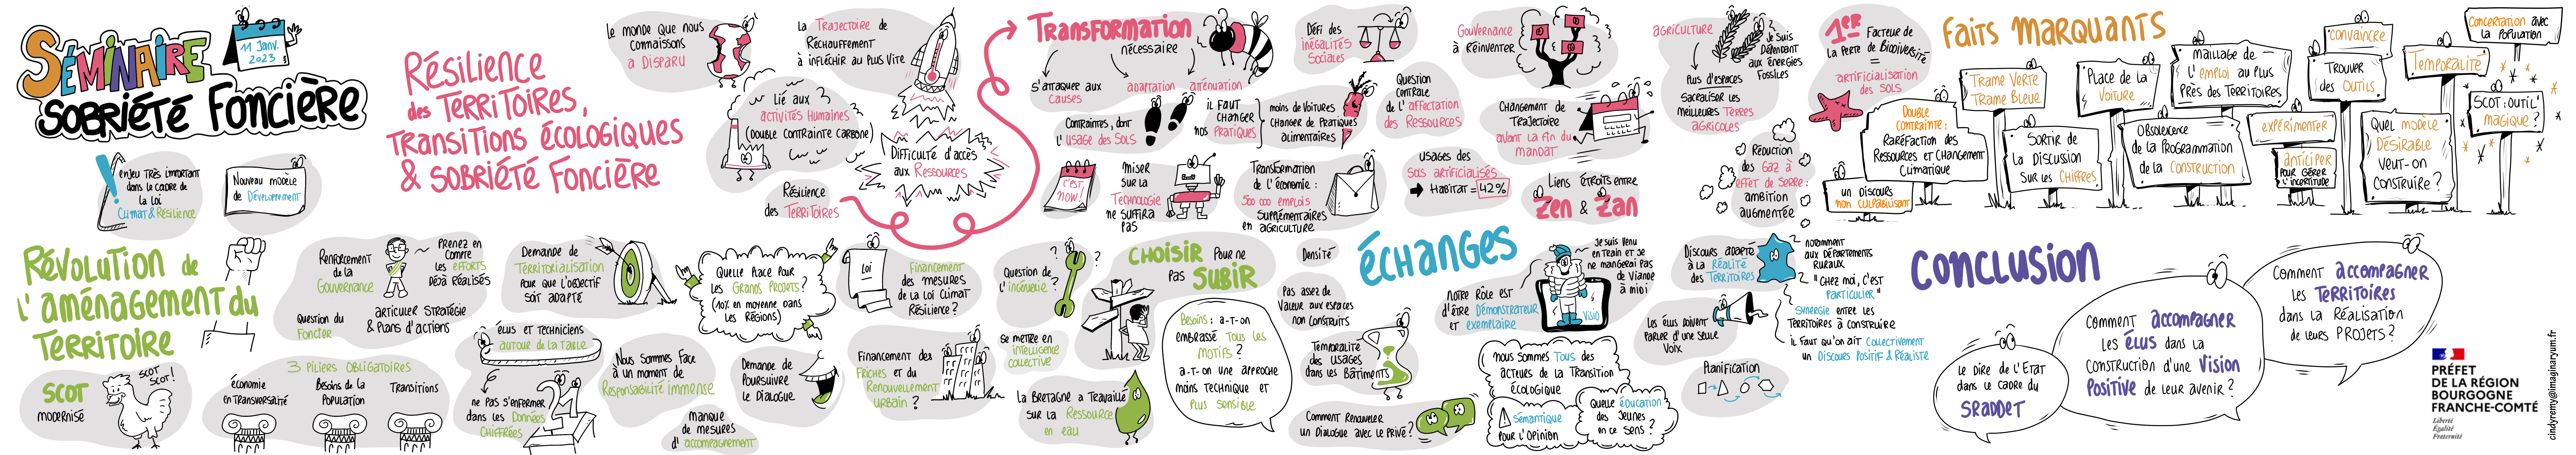 SÉMINAIRE
SOBRIÉTÉ FONCIÈRE
11 JANV.
2023
ENJEU TRÈS IMPORTANT
DANS LE CADRE DE
LA LOI
CLIMAT & RÉSILIENCE
NOUVEAU MODÈLE
DE DÉVELOPPEMENT
RÉSILIENCE
DES TERRITOIRES,
TRANSITIONS ÉCOLOGIQUES
& SOBRIÉTÉ FONCIÈRE
LE MONDE QUE NOUS
CONNAISSONS
A DISPARU
LA TRAJECTOIRE DE
RÉCHAUFFEMENT
À INFLÉCHIR AU PLUS VITE
LIÉ AUX
ACTIVITÉS HUMAINES
(DOUBLE CONTRAINTE CARBONE)
DIFFICULTÉ D'ACCÈS
AUX RESSOURCES
RÉSILIENCE
DES TERRITOIRES
TRANSFORMATION
NÉCESSAIRE
S'ATTAQUER AUX
CAUSES
ADAPTATION
ATTÉNUATION
CONTRAINTES, DONT
L'USAGE DES SOLS
IL FAUT
CHANGER
NOS PRATIQUES
MOINS DE VOITURES
CHANGER DE PRATIQUES
ALIMENTAIRES
C'EST
NOW!
MISER
SUR LA
TECHNOLOGIE
NE SUFFIRA
PAS
TRANSFORMATION
DE L'ÉCONOMIE :
500 000 EMPLOIS
SUPPLÉMENTAIRES
EN AGRICULTURE
DÉFI DES
INÉGALITÉS
SOCIALES
QUESTION
CENTRALE
DE L'AFFECTATION
DES RESSOURCES
USAGES DES
SOLS ARTIFICIALISÉS
➡ HABITAT = 42%
GOUVERNANCE
À RÉINVENTER
CHANGEMENT DE
TRAJECTOIRE
AVANT LA FIN DU
MANDAT
LIENS ÉTROITS ENTRE
ZEN & ZAN
AGRICULTURE
JE SUIS
DÉPENDANT
AUX ÉNERGIES
FOSSILES
PLUS D'ESPACES
SACRALISER LES
MEILLEURES TERRES
AGRICOLES
RÉDUCTION
DES GAZ À
EFFET DE SERRE :
AMBITION
AUGMENTÉE
1ER FACTEUR DE
LA PERTE DE BIODIVERSITÉ
=
ARTIFICIALISATION
DES SOLS
FAITS MARQUANTS
DOUBLE
CONTRAINTE :
RARÉFACTION DES
RESSOURCES ET CHANGEMENT
CLIMATIQUE
UN DISCOURS
NON CULPABILISANT
TRAME VERTE
TRAME BLEUE
SORTIR DE
LA DISCUSSION
SUR LES CHIFFRES
PLACE DE LA
VOITURE
OBSOLESCENCE
DE LA PROGRAMMATION
DE LA CONSTRUCTION
MAILLAGE DE
L'EMPLOI AU PLUS
PRÈS DES TERRITOIRES
EXPÉRIMENTER
ANTICIPER
POUR GÉRER
L'INCERTITUDE
CONVAINCRE
TROUVER
DES OUTILS
QUEL MODÈLE
DÉSIRABLE
VEUT-ON
CONSTRUIRE ?
TEMPORALITÉ
CONCERTATION AVEC
LA POPULATION
SCOT : OUTIL
MAGIQUE ?
RÉVOLUTION DE
L'AMÉNAGEMENT DU
TERRITOIRE
SCOT
MODERNISÉ
SCOT
SCOT !
RENFORCEMENT
DE LA
GOUVERNANCE
PRENEZ EN
COMPTE
LES EFFORTS
DÉJÀ RÉALISÉS
QUESTION DU
FONCIER
ARTICULER STRATÉGIE
& PLANS D'ACTIONS
3 PILIERS OBLIGATOIRES
ÉCONOMIE
EN TRANSVERSALITÉ
BESOINS DE LA
POPULATION
TRANSITIONS
DEMANDE DE
TERRITORIALISATION
POUR QUE L'OBJECTIF
SOIT ADAPTÉ
ÉLUS ET TECHNICIENS
AUTOUR DE LA TABLE
NE PAS S'ENFERMER
DANS LES DONNÉES
CHIFFRÉES
QUELLE PLACE POUR
LES GRANDS PROJETS ?
(10% EN MOYENNE DANS
LES RÉGIONS)
NOUS SOMMES FACE
À UN MOMENT DE
RESPONSABILITÉ IMMENSE
MANQUE
DE MESURES
D'ACCOMPAGNEMENT
DEMANDE DE
POURSUIVRE
LE DIALOGUE
LOI
FINANCEMENT
DES MESURES
DE LA LOI CLIMAT
RÉSILIENCE ?
FINANCEMENT DES
FRICHES ET DU
RENOUVELLEMENT
URBAIN ?
QUESTION DE
L'INGÉNIERIE ?
SE METTRE EN
INTELLIGENCE
COLLECTIVE
LA BRETAGNE A TRAVAILLÉ
SUR LA RESSOURCE
EN EAU
CHOISIR POUR NE
PAS SUBIR
BESOINS : A-T-ON
EMBRASSÉ TOUS LES
MOTIFS ?
A-T-ON UNE APPROCHE
MOINS TECHNIQUE ET
PLUS SENSIBLE
DENSITÉ
PAS ASSEZ DE
VALEUR AUX ESPACES
NON CONSTRUITS
TEMPORALITÉ
DES USAGES
DANS LES BÂTIMENTS
COMMENT RENOUVELER
UN DIALOGUE AVEC LE PRIVÉ ?
ÉCHANGES
NOTRE RÔLE EST
D'ÊTRE DÉMONSTRATEUR
ET EXEMPLAIRE
JE SUIS VENU
EN TRAIN ET JE
NE MANGERAI PAS
DE VIANDE
À MIDI
VISIO
NOUS SOMMES TOUS DES
ACTEURS DE LA TRANSITION
ÉCOLOGIQUE
SÉMANTIQUE
POUR L'OPINION
QUELLE ÉDUCATION
DES JEUNES
EN CE SENS ?
DISCOURS ADAPTÉ
À LA RÉALITÉ
DES TERRITOIRES
NOTAMMENT
AUX DÉPARTEMENTS
RURAUX
"CHEZ MOI, C'EST
PARTICULIER"
LES ÉLUS DOIVENT
PARLER D'UNE SEULE
VOIX
SYNERGIE ENTRE LES
TERRITOIRES À CONSTRUIRE
IL FAUT QU'ON AIT COLLECTIVEMENT
UN DISCOURS POSITIF & RÉALISTE
PLANIFICATION
CONCLUSION
LE DIRE DE L'ETAT
DANS LE CADRE DU
SRADDET
COMMENT ACCOMPAGNER
LES ÉLUS DANS LA
CONSTRUCTION D'UNE VISION
POSITIVE DE LEUR AVENIR ?
COMMENT ACCOMPAGNER
LES TERRITOIRES
DANS LA RÉALISATION
DE LEURS PROJETS ?
PRÉFET
DE LA RÉGION
BOURGOGNE
FRANCHE-COMTÉ
Liberté
Égalité
Fraternité
cindyremy@imaginaryum.fr